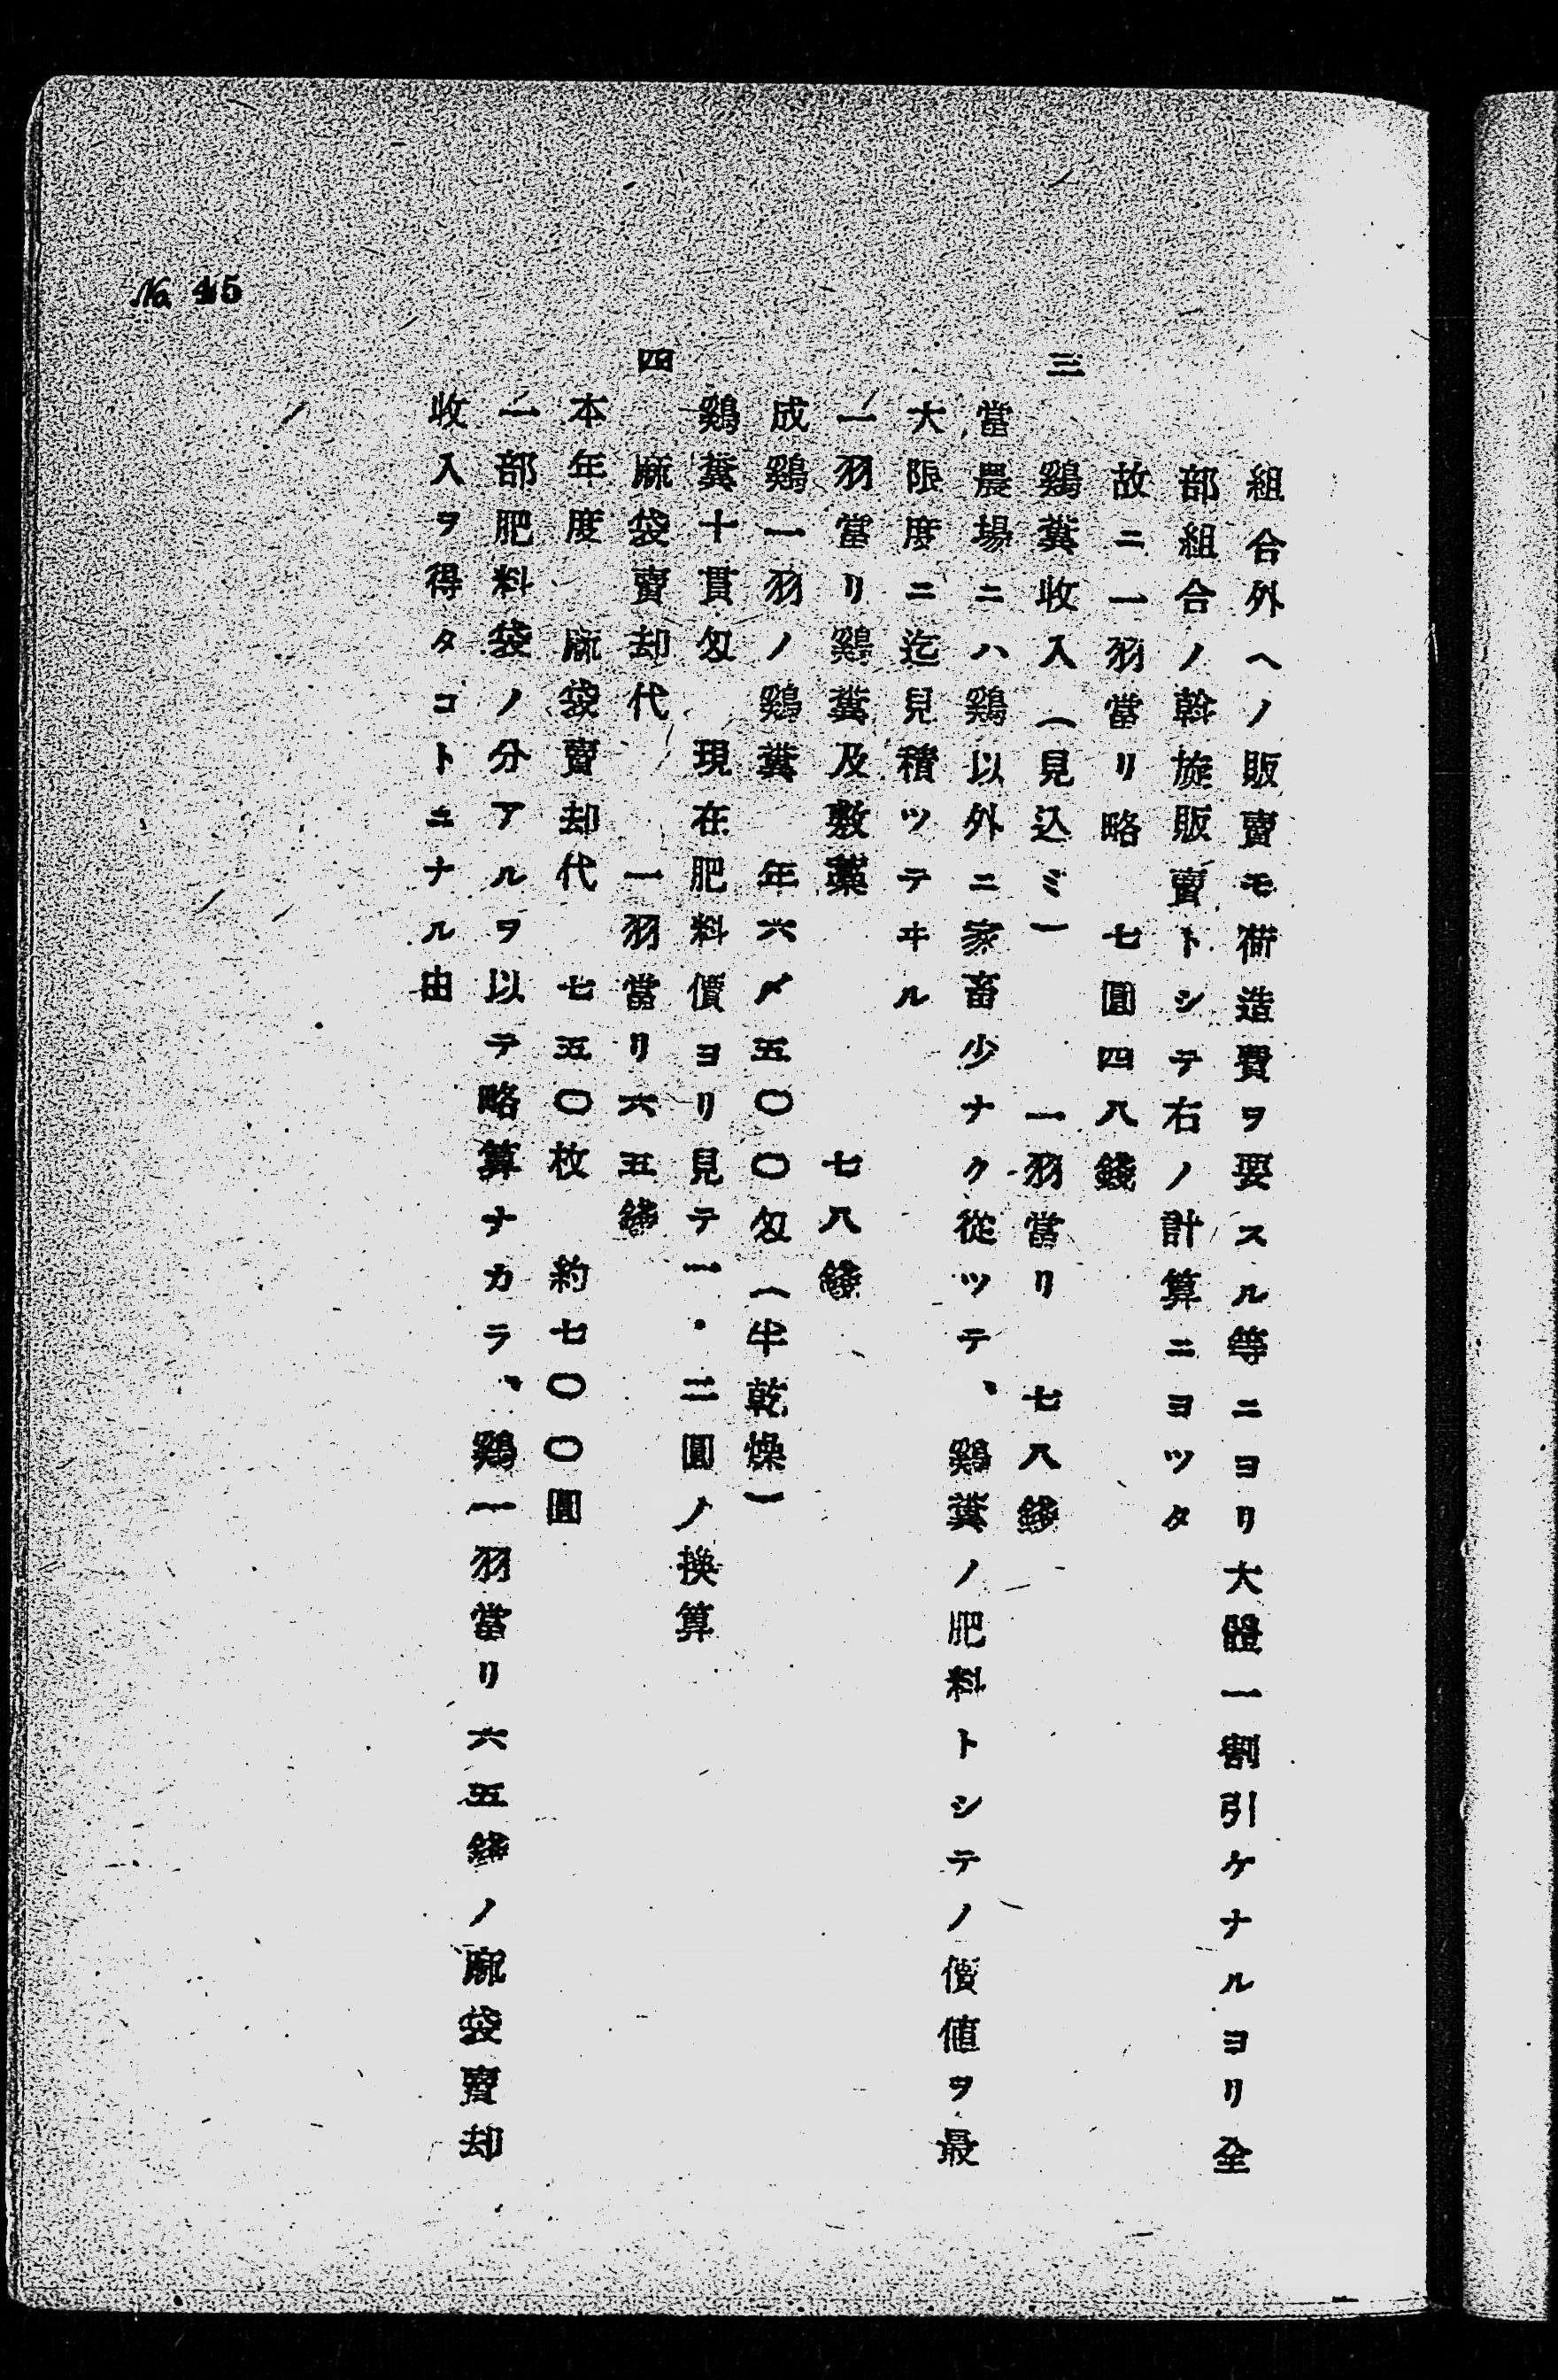 組合外ヘノ販賣モ荷造費ヲ要スル等ニヨリ大體一割引ケナルヨリ全
部組合ノ斡旋販賣トシテ右ノ計算ニヨツタ
故ニ一羽當リ略　七圓四八錢
三　鷄糞收入（見込ミ）　一羽當リ　七八錢
當農場ニハ鷄以外ニ家畜少ナク從ツテ、鷄糞ノ肥料トシテノ價値ヲ最
大限度ニ迄見積ツテヰル
一羽當リ鷄糞及敷藁　七八錢
成鷄一羽ノ鷄糞　年六〆五〇〇匁（半乾燥）
鷄糞十貫匁　現在肥料價ヨリ見テ一・二圓ノ換算
四　麻袋賣却代　一羽當リ六五錢
本年度　麻袋賣却代　七五〇枚　約七〇〇圓
一部肥料袋ノ分アルヲ以テ略算ナカラ、鷄一羽當リ六五錢ノ麻袋賣却
收入ヲ得タコトニナル由
No. 45